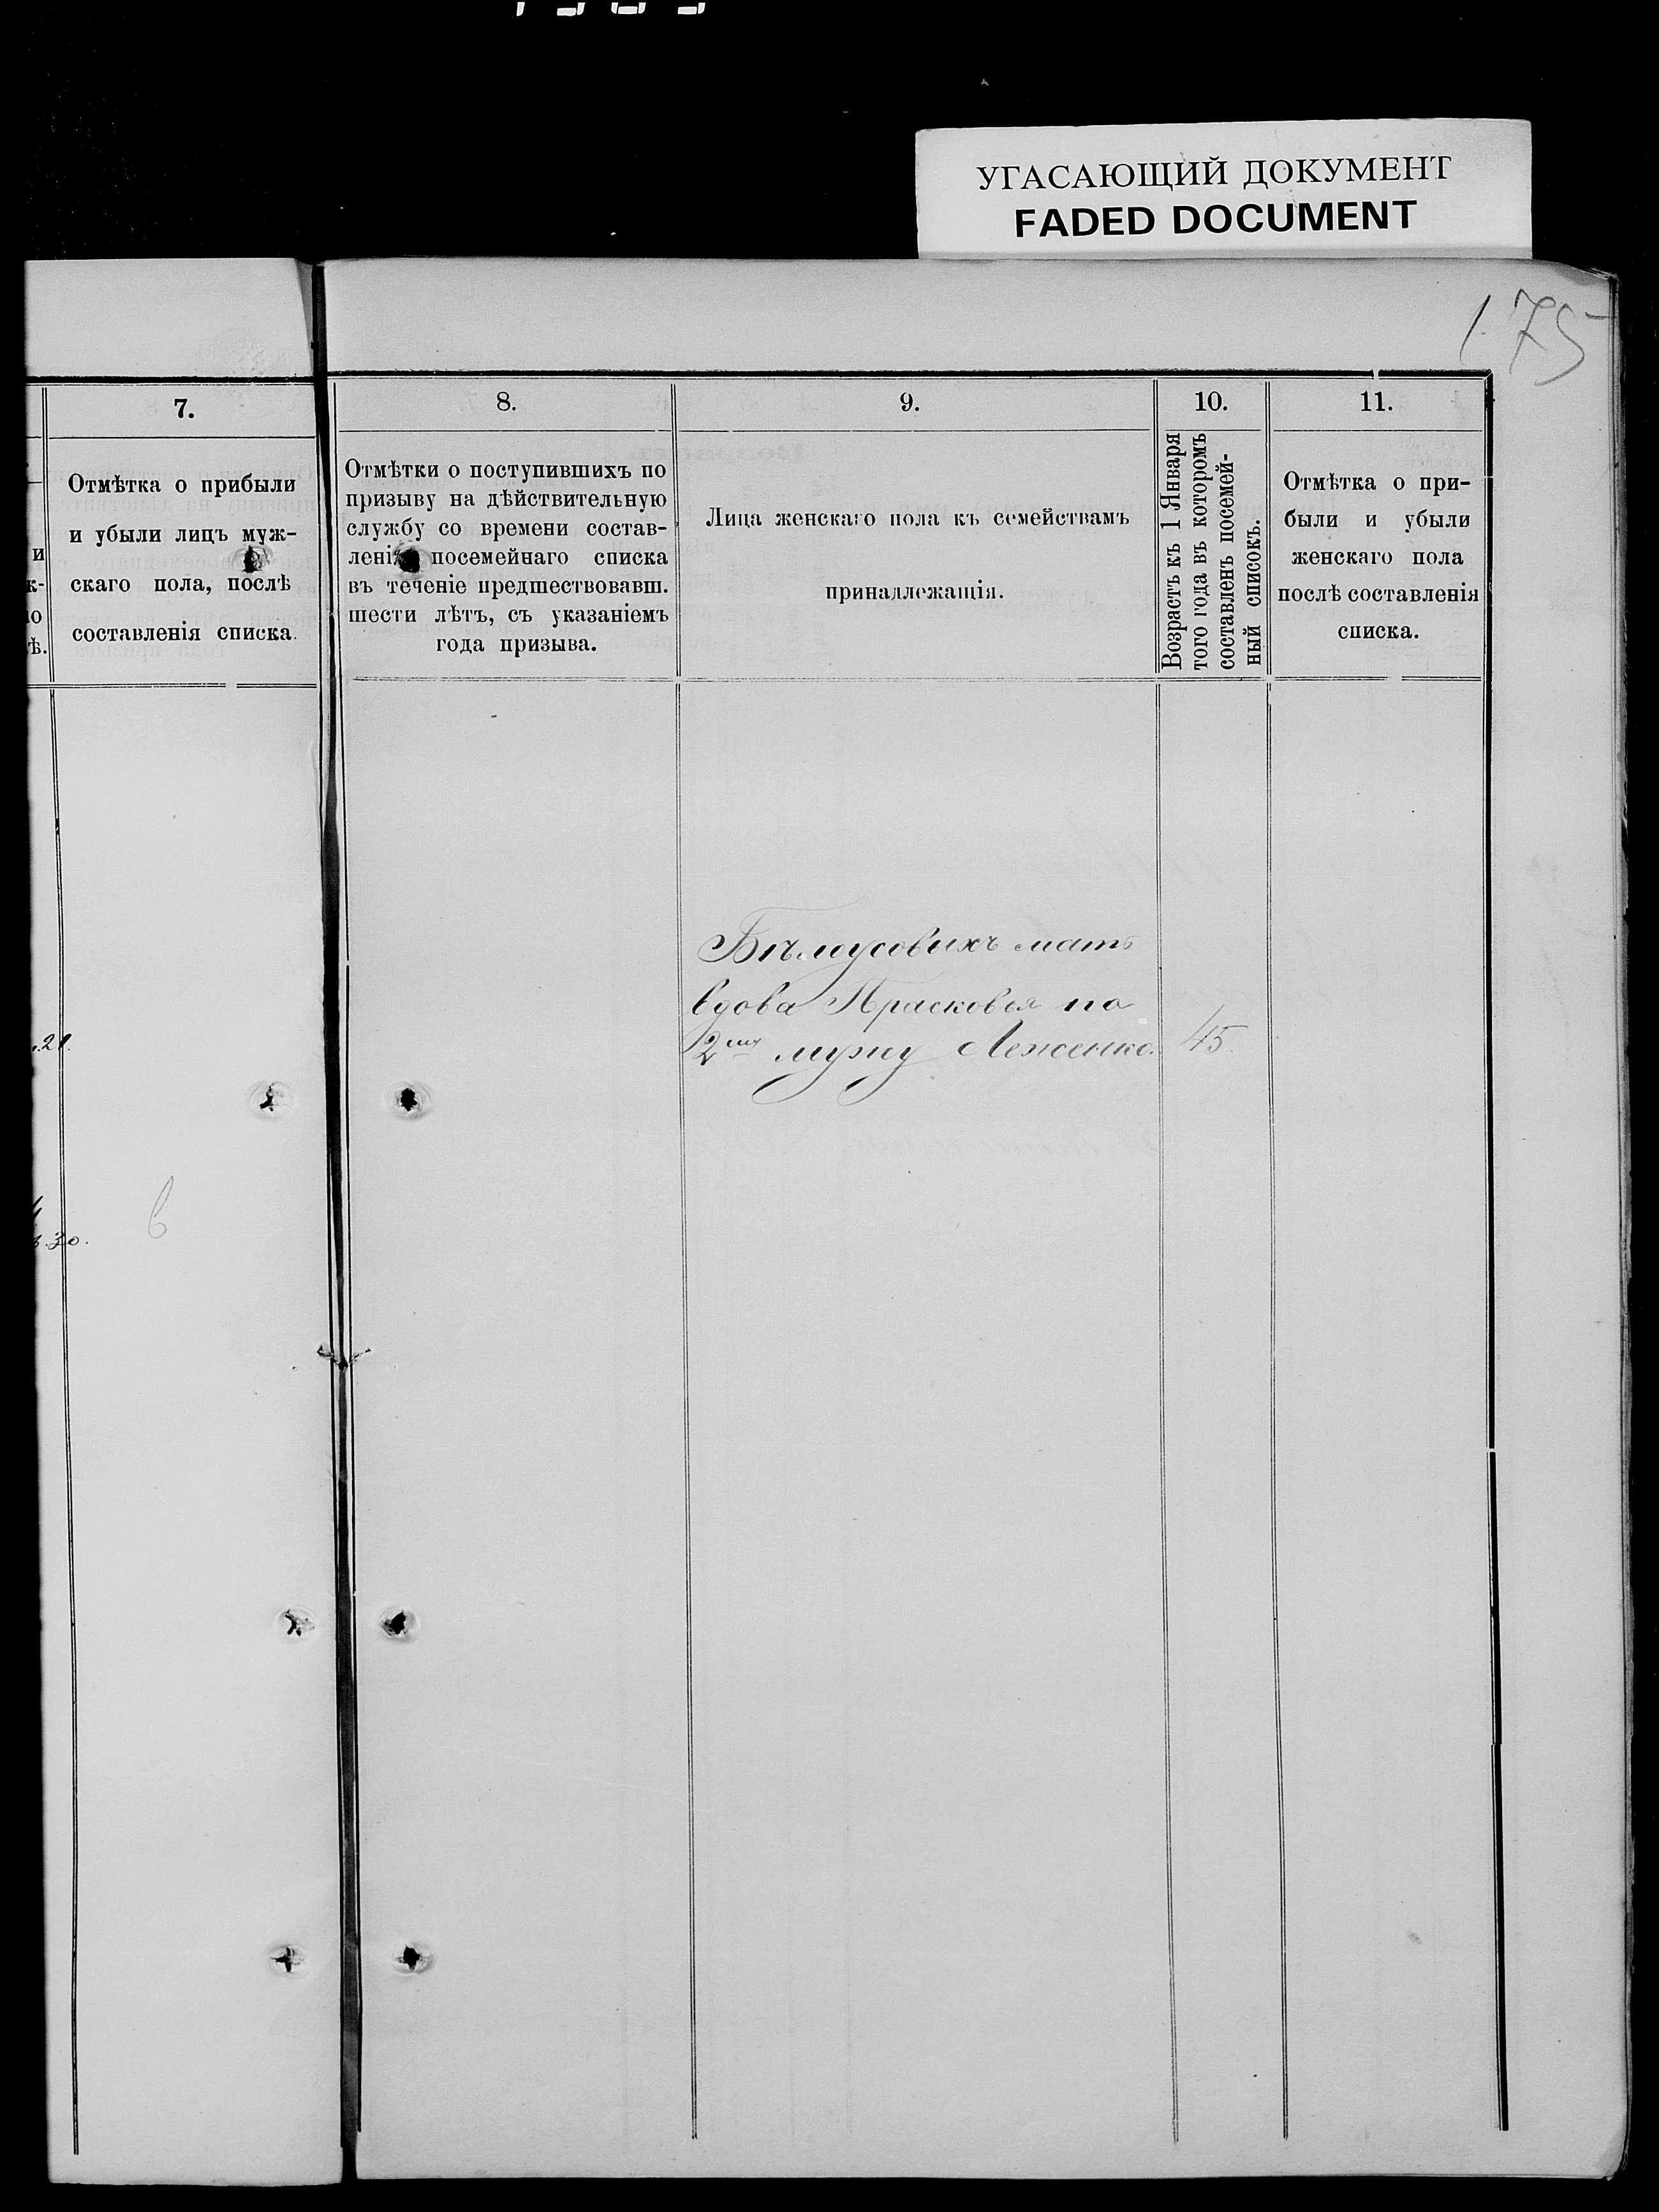 УГАСАЮЩИЙ ДОКУМЕНТ
FADED DOCUMENT
175
7.
Отмѣтка о прибыли
и убыли лицъ муж-
скаго пола, послѣ
составленія списка.
21.
30.
8.
Отмѣтки о поступившихъ по
призыву на дѣйствительную
службу со времени состав-
лені посемейнаго списка
въ теченіе предшествовавш.
шести лѣтъ, съ указаніемъ
года призыва.
9.
Лица женскаго пола къ семействамъ
принадлежащія.
Бѣлоусовыхъ мать
вдова Прасковья по
2му мужу Леженко.
10.
Возрастъ къ 1 Января
того года въ которомъ
составленъ посемей-
ный списокъ.
45
11.
Отмѣтка о при-
были и убыли
женскаго пола
послѣ составленія
списка.